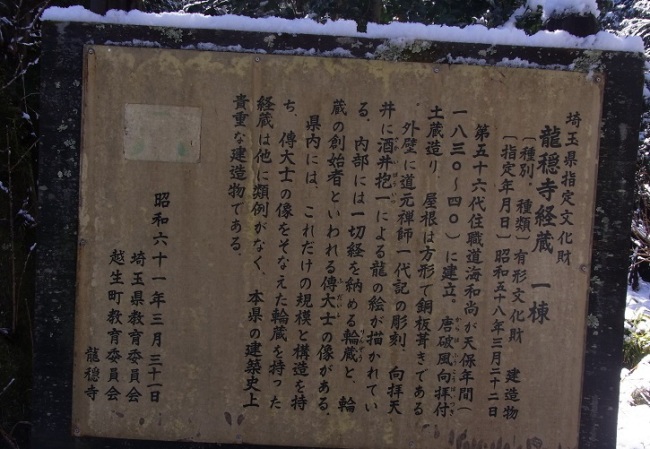 埼玉県指定文化財
龍穏寺経蔵 一棟
〔種別・種類〕有形文化財 建造物
〔指定年月日〕昭和五十八年三月二十二日
第五十六代住職道海和尚が天保年間（
一八三〇～四〇）に建立。唐破風向拝付
土蔵造り、屋根は方形で銅板葺きである
。外壁に道元禅師一代記の彫刻、向拝天
井に酒井抱一による龍の絵が描かれてい
る。内部には一切経を納める輪蔵と、輪
蔵の創始者といわれる傅大士の像がある。
県内には、これだけの規模と構造を持
ち、傅大士の像をそなえた輪蔵を持った
経蔵は他に類例がなく、本県の建築史上
貴重な建造物である。
昭和六十一年三月三十一日
埼玉県教育委員会
越生町教育委員会
龍穏寺